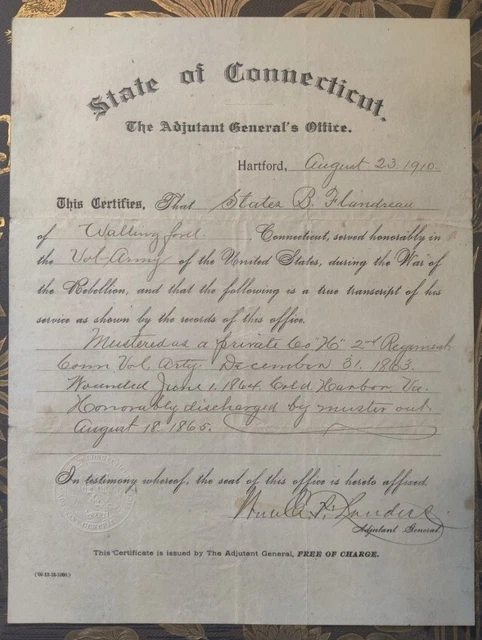 State of Connecticut.
The Adjutant General's Office.
Hartford, August 23 1910.
This Certifies, That States B. Flandreau
of Wallingford Connecticut, served honorably in
the Vol. Army of the United States, during the War of
the Rebellion, and that the following is a true transcript of his
service as shown by the records of this office.
Mustered as a private Co "H" 2nd Regiment
Conn Vol. Arty. December 31. 1863.
Wounded June 1, 1864 Cold Harbor, Va.
Honorably discharged by muster out
August 18. 1865.
In testimony whereof, the seal of this office is hereto affixed.
Adjutant General.
This Certificate is issued by The Adjutant General, FREE OF CHARGE.